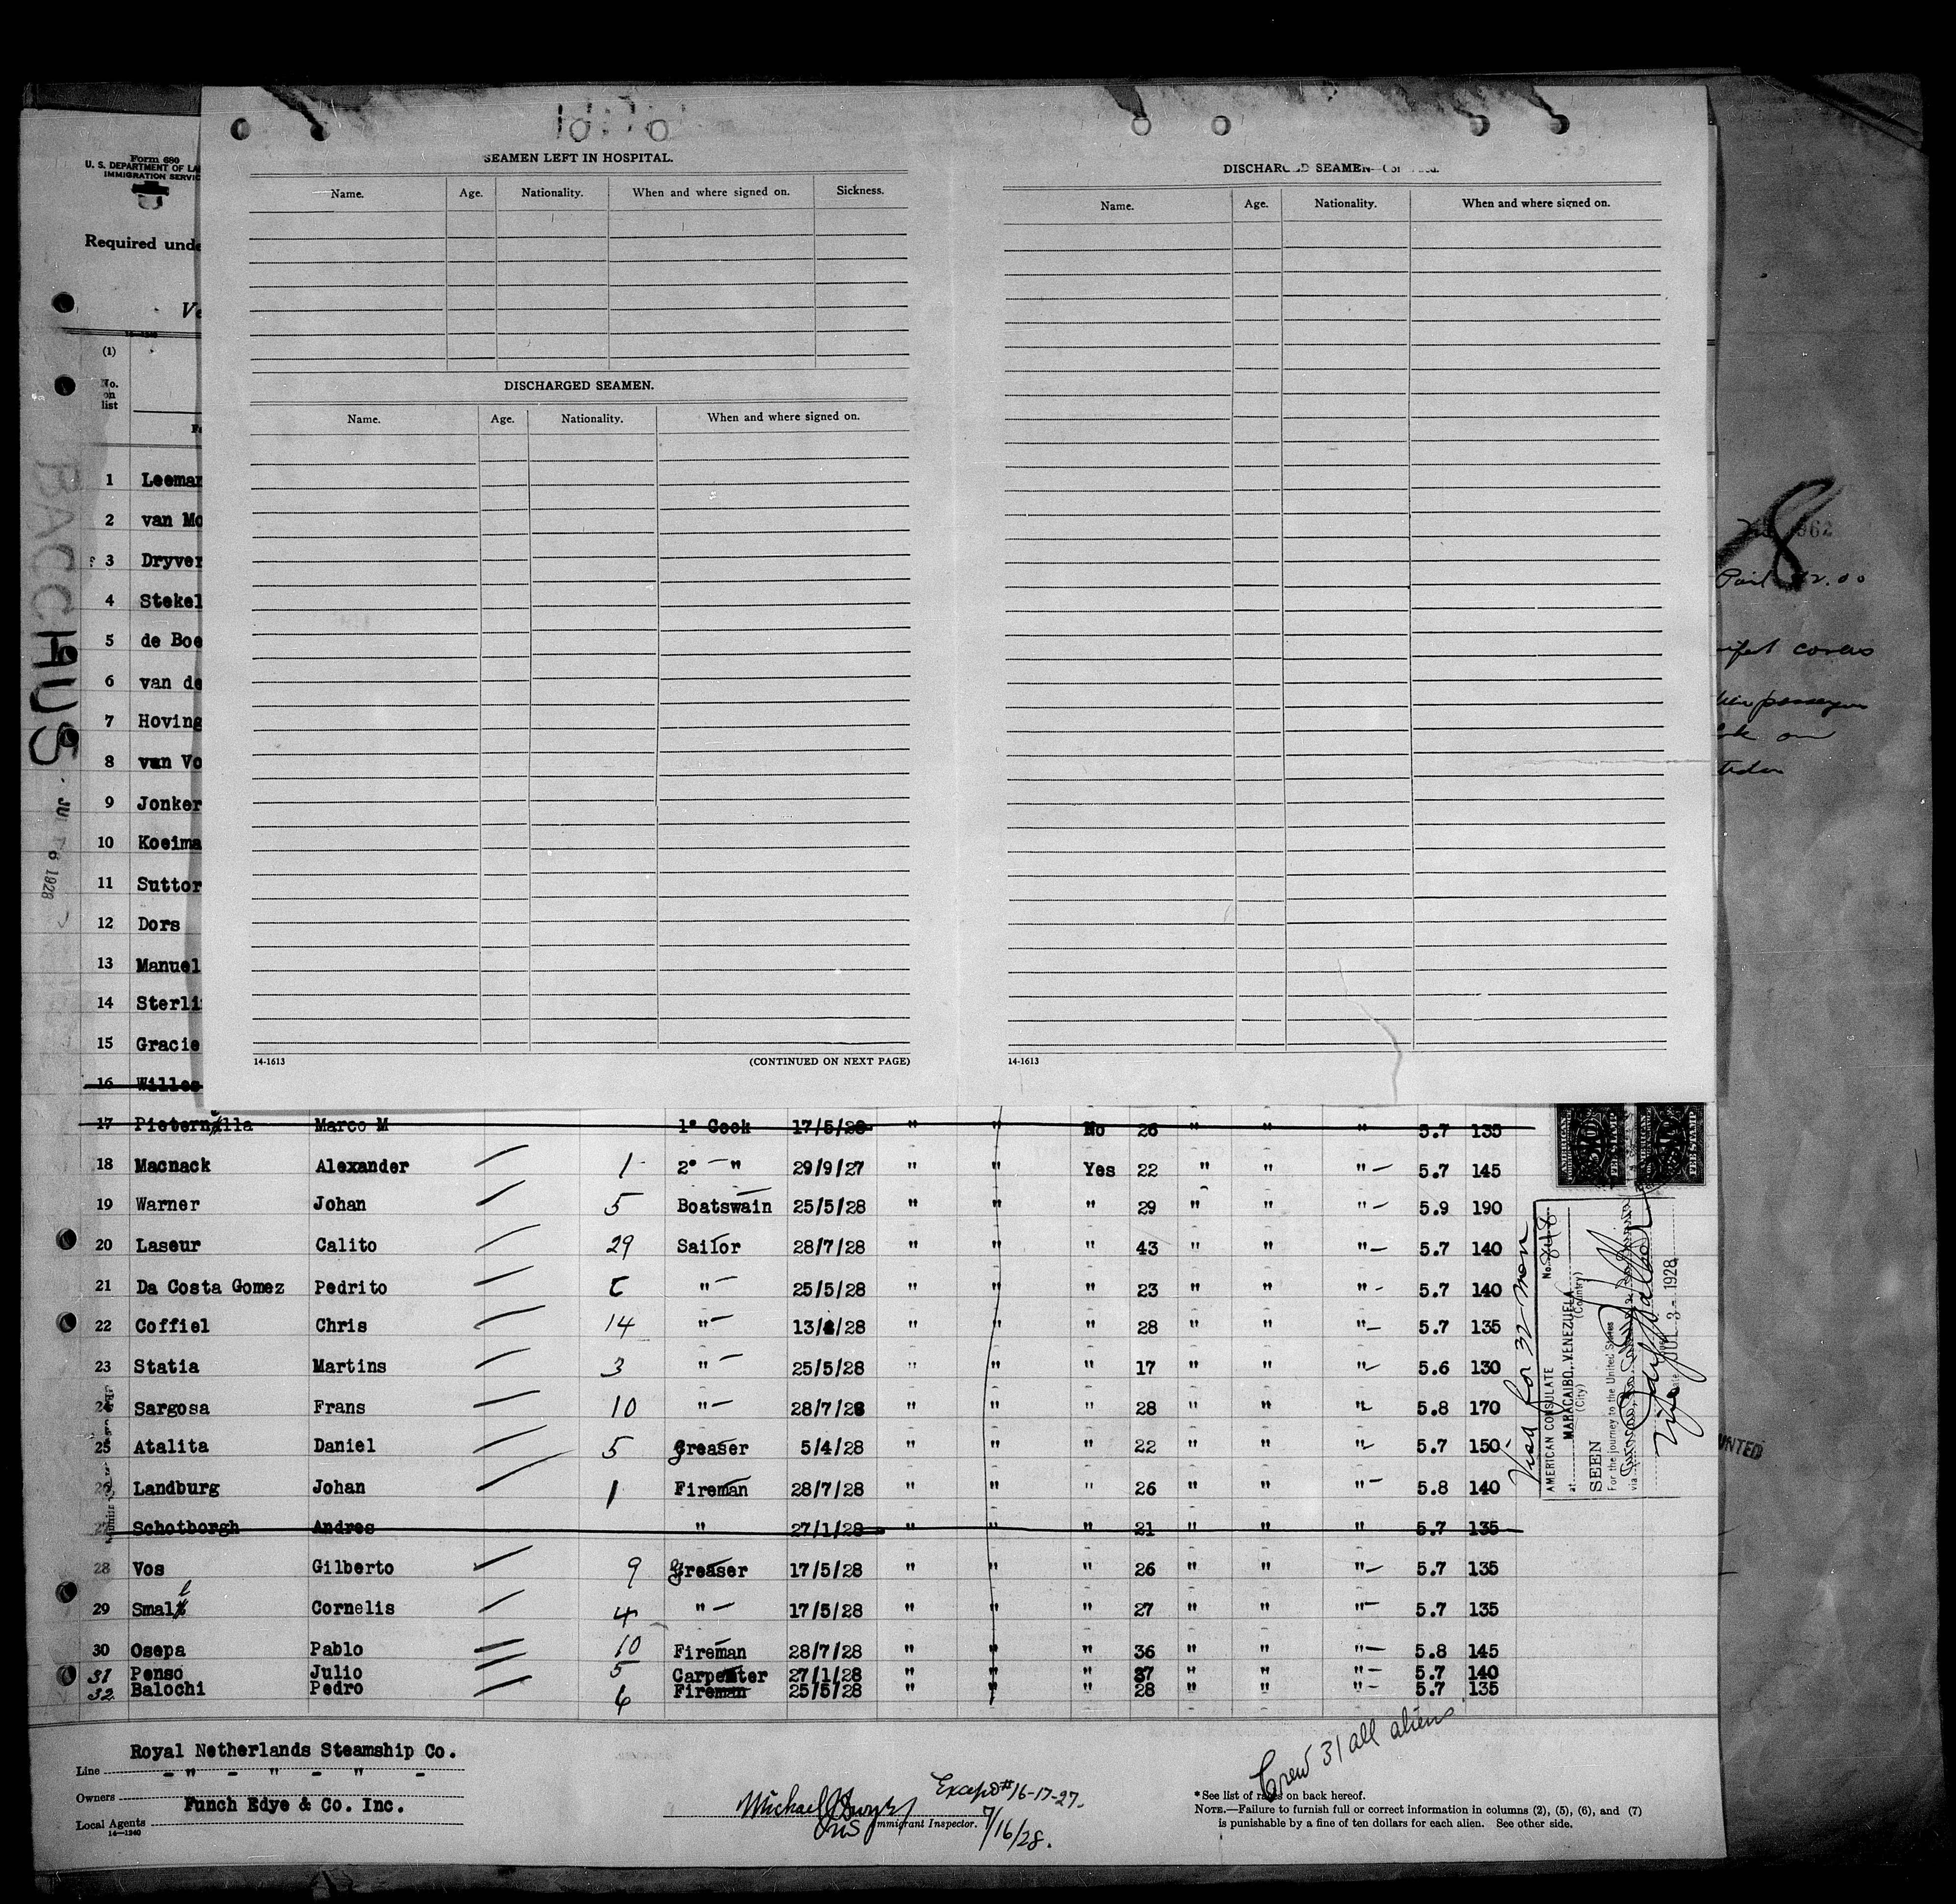 Form 680
U. S. DEPARTMENT OF LA
IMMIGRATION SERVIC
Required unde
(1)
No. on list
SEAMEN LEFT IN HOSPITAL.
Name. Age. Nationality. When and where signed on. Sickness.
DISCHARGED SEAMEN.
Name. Age. Nationality. When and where signed on.
14-1613 (CONTINUED ON NEXT PAGE)
DISCHARGED SEAMEN
Name. Age. Nationality. When and where signed on.
14-1613
BACCHUS
1928
1 Leeman
2 van Mo
3 Dryver
4 Stekel
5 de Boe
6 van de
7 Hoving
8 van Vo
9 Jonker
10 Koeima
11 Suttor
12 Dors
13 Manuel
14 Sterli
15 Gracie
16 Willes
17 Pieternella Marco M 1e Cook 17/5/28 " " No 26 " " " 5.7 135
18 Macnack Alexander 1 2e " 29/9/27 " " Yes 22 " " " 5.7 145
19 Warner Johan 5 Boatswain 25/5/28 " " " 29 " " " 5.9 190
20 Laseur Calito 29 Sailor 28/7/28 " " " 43 " " " 5.7 140
21 Da Costa Gomez Pedrito " 25/5/28 " " " 23 " " " 5.7 140
22 Coffiel Chris 14 " 13/ /28 " " " 28 " " " 5.7 135
23 Statia Martins 3 " 25/5/28 " " " 17 " " " 5.6 130
24 Sargosa Frans 10 " 28/7/28 " " " 28 " " " 5.8 170
25 Atalita Daniel 5 Greaser 5/4/28 " " " 22 " " " 5.7 150
26 Landburg Johan 1 Fireman 28/7/28 " " " 26 " " " 5.8 140
27 Schotborgh Andres " 27/1/28 " " " 21 " " " 5.7 135
28 Vos Gilberto 9 Greaser 17/5/28 " " " 26 " " " 5.7 135
29 Smal Cornelis 4 " 17/5/28 " " " 27 " " " 5.7 135
30 Osepa Pablo 10 Fireman 28/7/28 " " " 36 " " " 5.8 145
31 Penso Julio 5 Carpenter 27/1/28 " " " 37 " " " 5.7 140
32 Balochi Pedro 6 Fireman 25/5/28 " " " 28 " " " 5.7 135
Visa for 32 men
AMERICAN CONSULATE No. 848
at MARACAIBO, VENEZUELA
(City) (Country)
SEEN
For the journey to the United States
via
JUL 3 - 1928
AMERICAN
FEE STAMP
AMERICAN
FEE STAMP
8
962
Paid $2.00
Royal Netherlands Steamship Co.
Line - " - " - " -
Owners
Funch Edye & Co. Inc.
Local Agents
14-1240
Except #16-17-27.
Immigrant Inspector.
7/16/28.
Crew 31 all aliens
*See list of races on back hereof.
NOTE.—Failure to furnish full or correct information in columns (2), (5), (6), and (7)
is punishable by a fine of ten dollars for each alien. See other side.